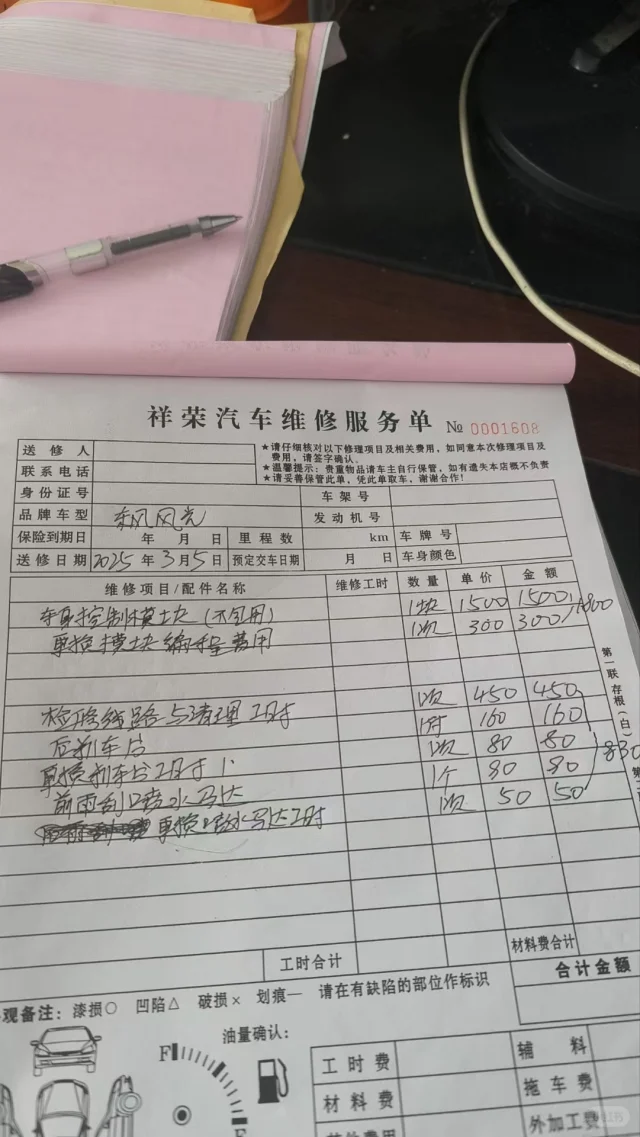 祥荣汽车维修服务单 № 0001608
送修人
联系电话
★请仔细核对以下修理项目及相关费用，如同意本次修理项目及
费用，请签字确认。
★温馨提示：贵重物品请车主自行保管，如有遗失本店概不负责
★请妥善保管此单，凭此单取车，谢谢合作！
身份证号 车架号
品牌车型 东风风光 发动机号
保险到期日 年 月 日 里程数 km 车牌号
送修日期 2025年3月5日 预定交车日期 月 日 车身颜色
维修项目/配件名称 维修工时 数量 单价 金额
车身控制模块（不包用） 1块 1500 1500
更换模块编程费用 1次 300 300 1800
检修线路与清理工时 1次 450 450
后刹车片 1付 160 160
更换刹车片工时 1次 80 80
前雨刮喷水马达 1个 90 90
更换喷水马达工时 1次 50 50
830
第一联 存根（白）
工时合计 材料费合计
合计金额
观备注：漆损○ 凹陷△ 破损× 划痕— 请在有缺陷的部位作标识
油量确认：
F
E
工时费 辅料
材料费 拖车费
外加工费
小红书